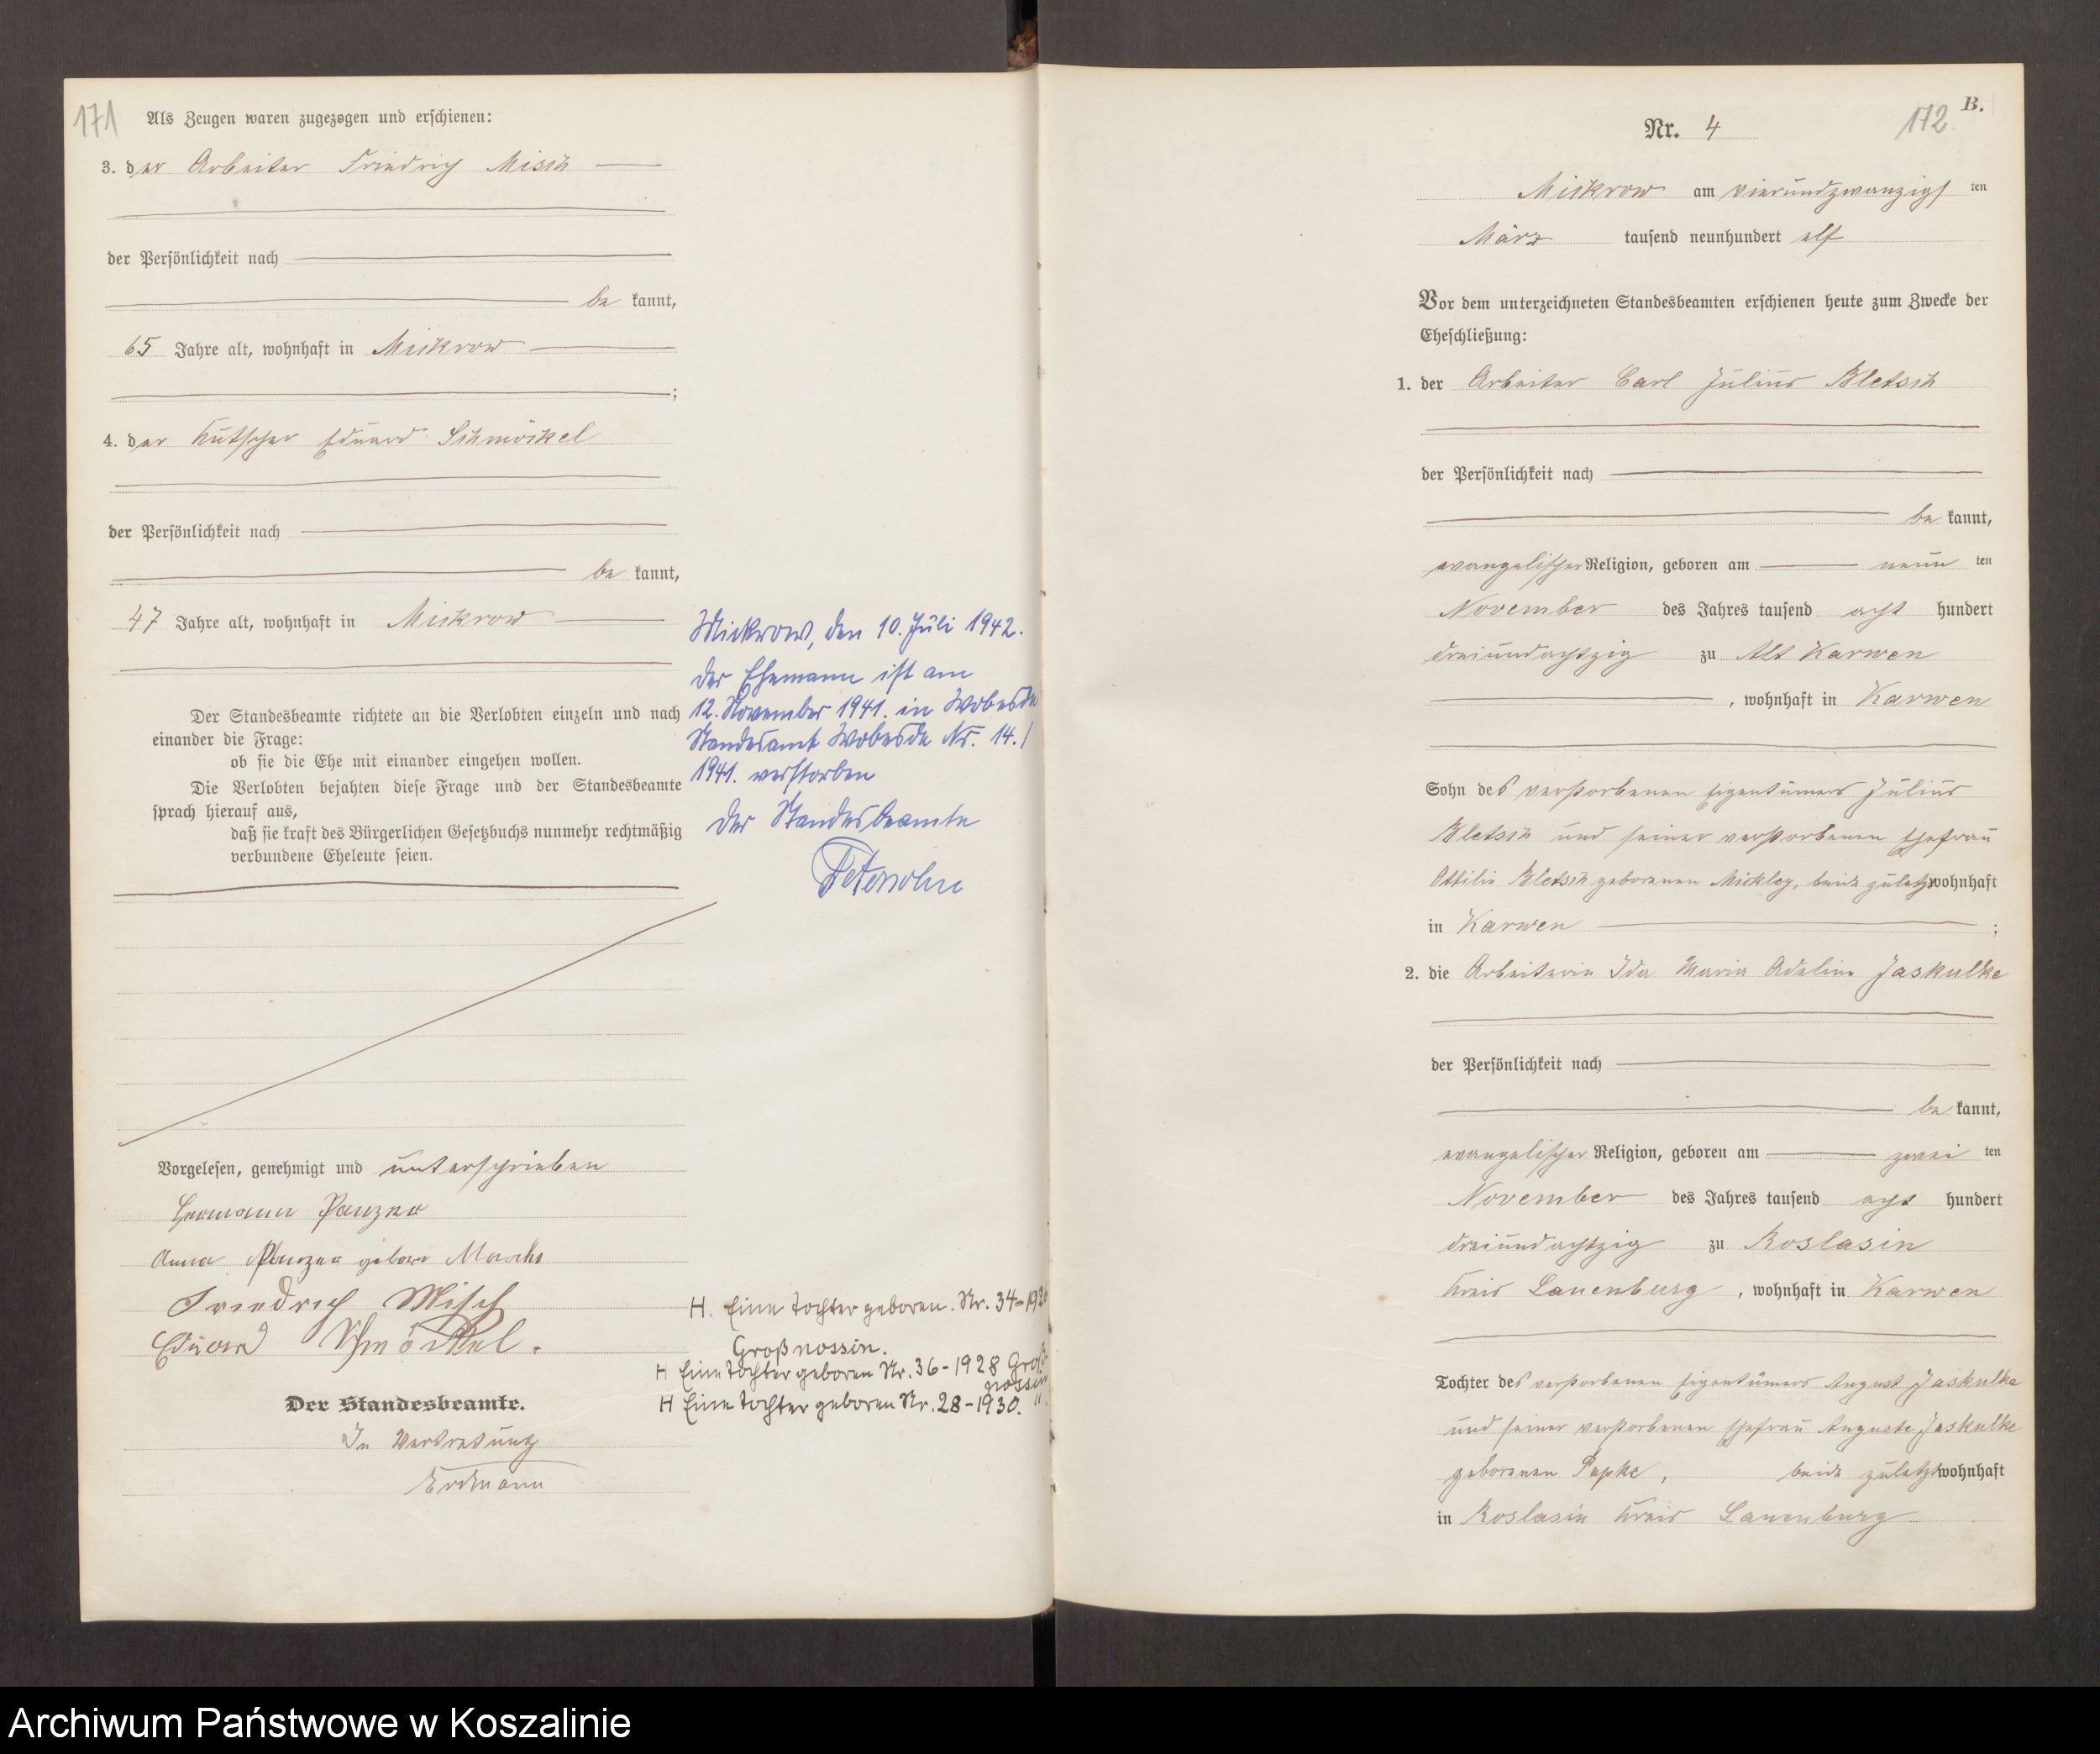 171
Als Zeugen waren zugezogen und erschienen:
3. der Arbeiter Friedrich Misch
der Persönlichkeit nach
be kannt,
65 Jahre alt, wohnhaft in Mickrow
;
4. der Kutscher Eduard Schmöckel
der Persönlichkeit nach
be kannt,
47 Jahre alt, wohnhaft in Mickrow
Der Standesbeamte richtete an die Verlobten einzeln und nach
einander die Frage:
ob sie die Ehe mit einander eingehen wollen.
Die Verlobten bejahten diese Frage und der Standesbeamte
sprach hierauf aus,
daß sie kraft des Bürgerlichen Gesetzbuchs nunmehr rechtmäßig
verbundene Eheleute seien.
Vorgelesen, genehmigt und unterschrieben
Hermann Panzer
Anna Panzer geborne
Friedrich Misch
Eduard Schmöckel.
Der Standesbeamte.
In Vertretung
Erdmann
Mickrow, den 10. Juli 1942.
Der Ehemann ist am
12. November 1941. in Wobesde
Standesamt Wobesde Nr. 14./
1941. verstorben
Der Standesbeamte
H. Eine Tochter geboren. Nr. 34-
Großnossin.
H Eine Tochter geboren Nr. 36-1928 Groß-
nossin
H Eine Tochter geboren Nr. 28-1930. ".
172
B.
Nr. 4
Mickrow am vierundzwanzigs ten
März tausend neunhundert elf
Vor dem unterzeichneten Standesbeamten erschienen heute zum Zwecke der
Eheschließung:
1. der Arbeiter Carl Julius Bletsch
der Persönlichkeit nach
be kannt,
evangelischer Religion, geboren am neun ten
November des Jahres tausend acht hundert
dreiundachtzig zu Alt Karwen
, wohnhaft in Karwen
Sohn des verstorbenen Eigentümers Julius
Bletsch und seiner verstorbenen Ehefrau
Ottilie Bletsch geborenen Mickley, beide zuletzt wohnhaft
in Karwen ;
2. die Arbeiterin Ida Maria Adeline Jaskulke
der Persönlichkeit nach
be kannt,
evangelischer Religion, geboren am zwei ten
November des Jahres tausend acht hundert
dreiundachtzig zu Roslasin
Kreis Lauenburg , wohnhaft in Karwen
Tochter des verstorbenen Eigentümers August Jaskulke
und seiner verstorbenen Ehefrau Auguste Jaskulke
geborenen Papke, beide zuletzt wohnhaft
in Roslasin Kreis Lauenburg
Archiwum Państwowe w Koszalinie